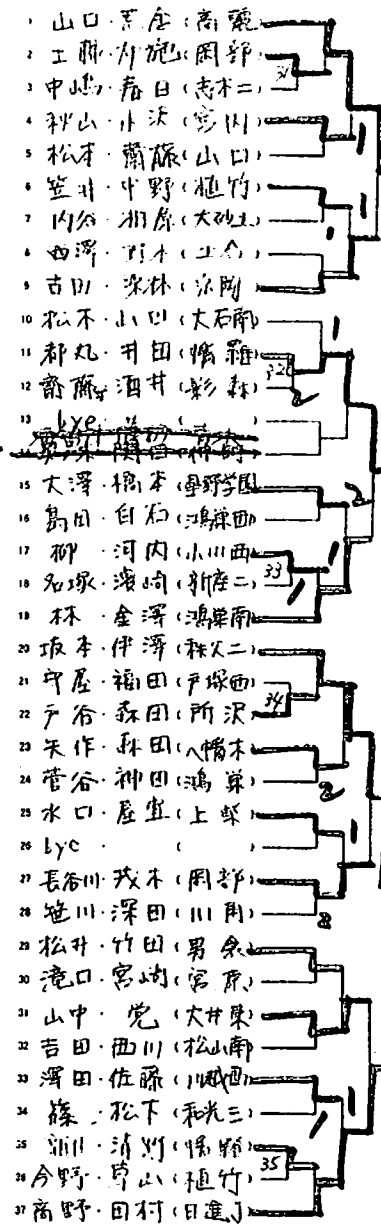 1 山口・荒居(高麗)
2 工藤・片施(岡部)
3 中嶋・春日(志木二)
4 秋山・小沢(宮内)
5 松本・齋藤(山口)
6 笠井・中野(植竹)
7 内谷・相原(大砂土)
8 西澤・
9 吉田・栗林
10 松本・小田(大石南)
11 都丸・井田(幡羅)
12 齋藤・酒井(影森)
13 bye
14
15 大澤・橋本(星野学園)
16 島田・白石(鴻巣西)
17 柳・河内(小川西)
18 名塚・濱崎(新座二)
19 林・金澤(鴻巣南)
20 坂本・伊澤(秩父二)
21 守屋・福田(戸塚西)
22 戸谷・森田(所沢)
23 矢作・森田(八幡木)
24 菅谷・神田(鴻巣)
25 水口・屋宜(上柴)
26 bye ( )
27 長谷川・茂木(岡部)
28 笹川・深田(川角)
29 松井・竹田(男衾)
30 滝口・宮崎(宮原)
31 山中・党(大井東)
32 吉田・西川(松山南)
33 澤田・佐藤(川越西)
34 篠・松下(和光三)
35
36 今野・草山(植竹)
37 高野・田村(日進)
31
32
33
34
35